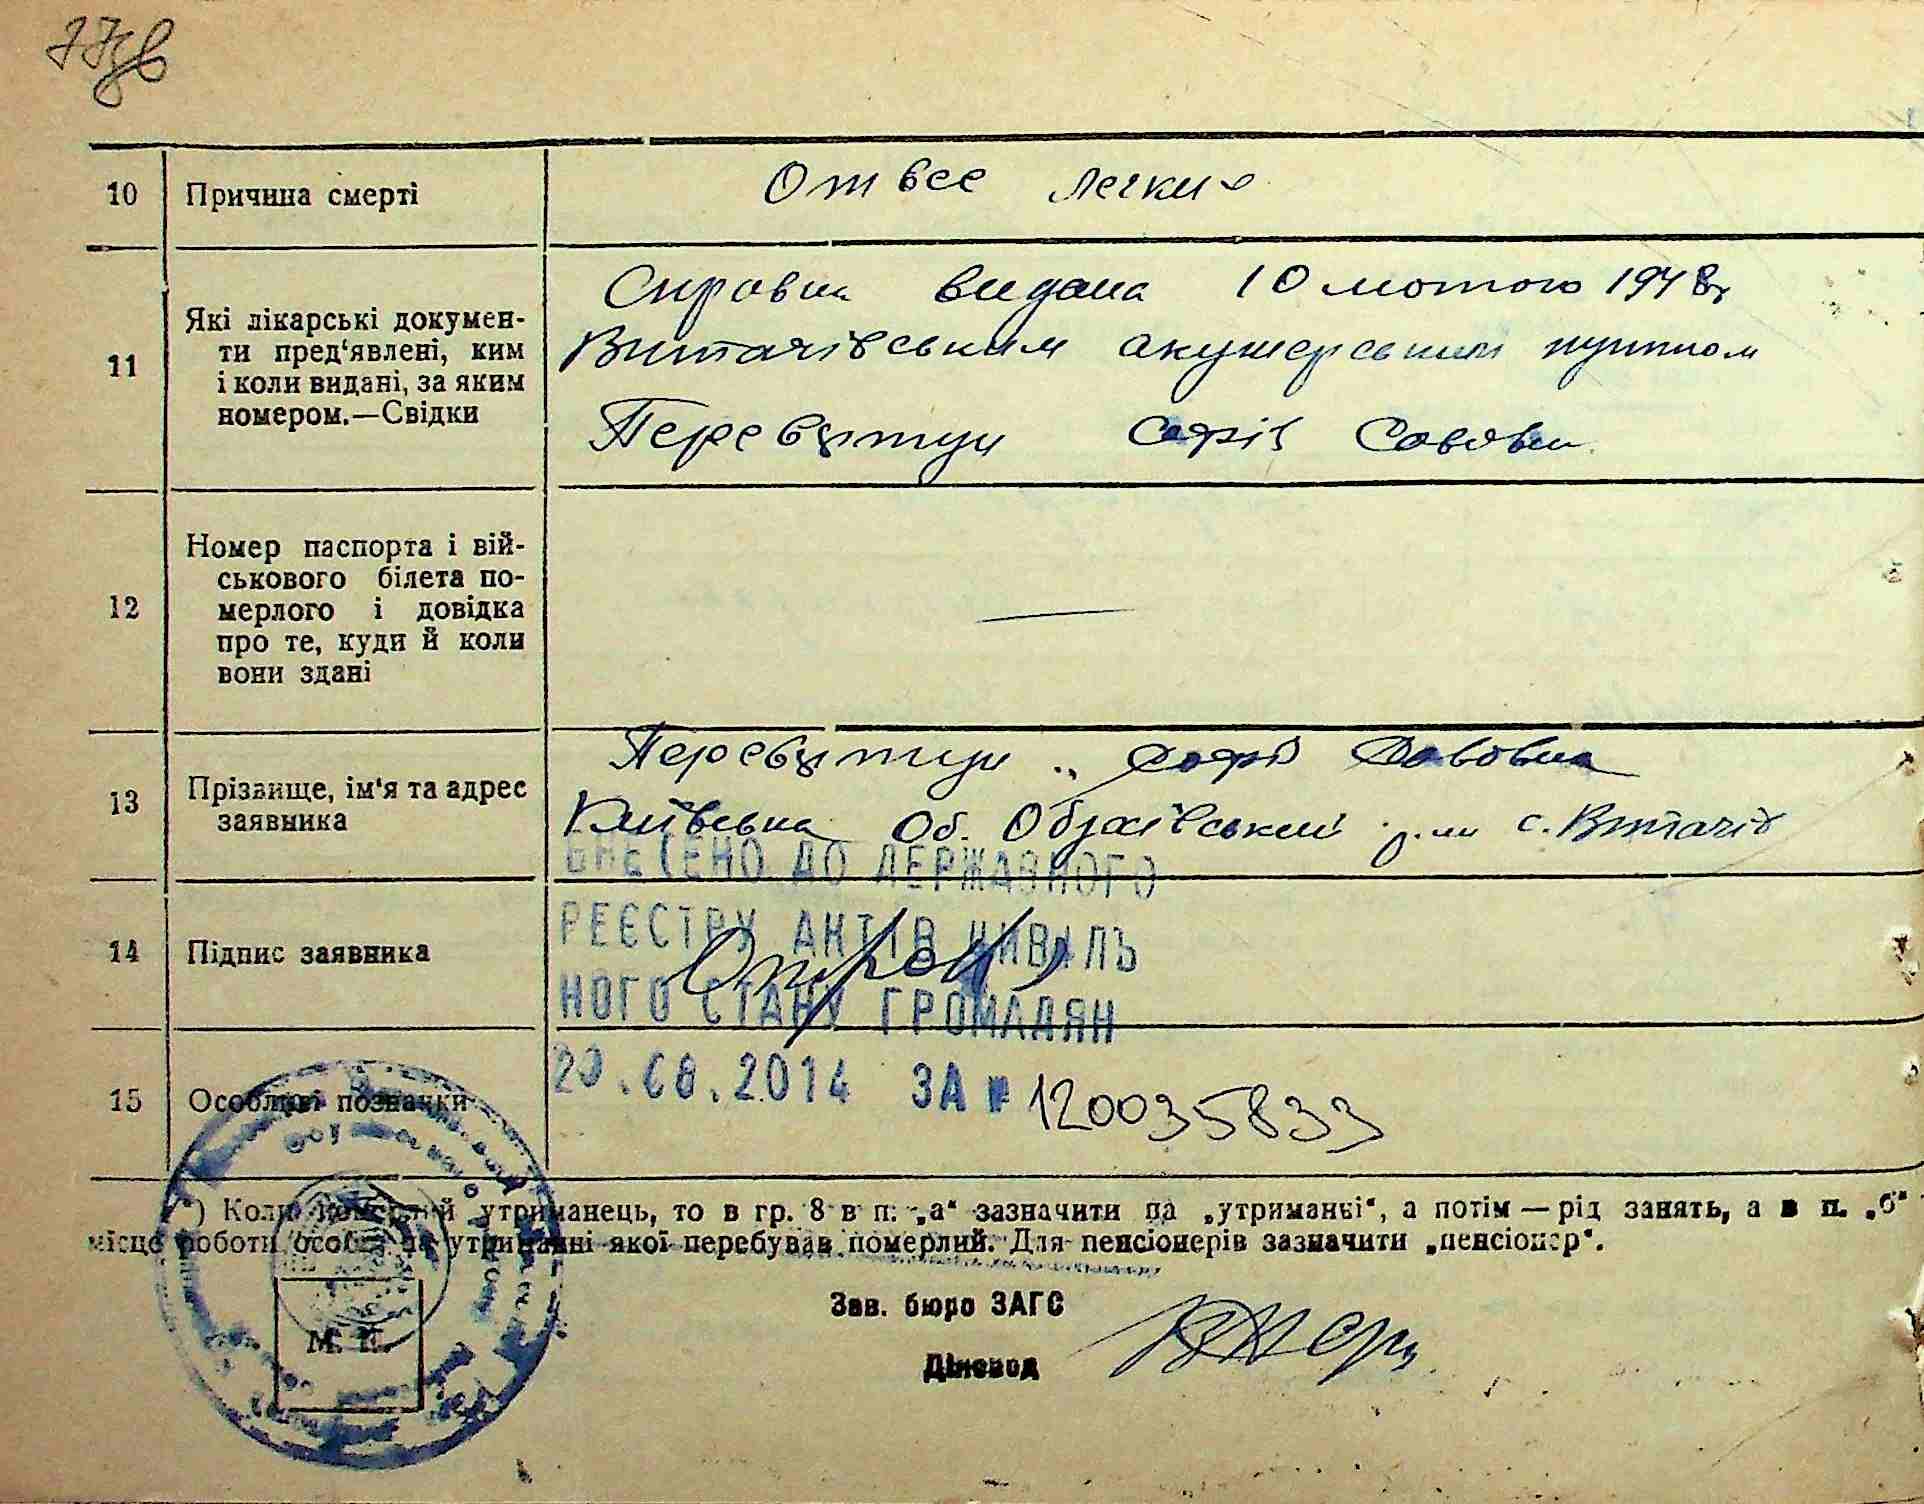 77зв
10 Причина смерті
От вее легких
11 Які лікарські докумен-
ти пред'явлені, ким
і коли видані, за яким
номером.—Свідки
Справка видана 10 лютого 1948 г
Витачівським акушерським пунктом
Софія Совівна
12 Номер паспорта і вій-
ськового білета по-
мерлого і довідка
про те, куди й коли
вони здані
—
13 Прізвище, ім'я та адрес
заявника
Софія
Київська об. Обухівський р-н с. Витачів
ВНЕСЕНО ДО ДЕРЖАВНОГО
14 Підпис заявника
РЕЄСТРУ АКТІВ ЦИВІЛЬ
НОГО СТАНУ ГРОМАДЯН
15 Особливі позначки
20.08.2014 ЗА № 120035833
*) Коли померлий утриманець, то в гр. 8 в п. „а“ зазначити на „утриманні“, а потім — рід занять, а в п. „б“
місце роботи особи, на утриманні якої перебував померлий. Для пенсіонерів зазначити „пенсіонер“.
Зав. бюро ЗАГС
М. П.
Діловод